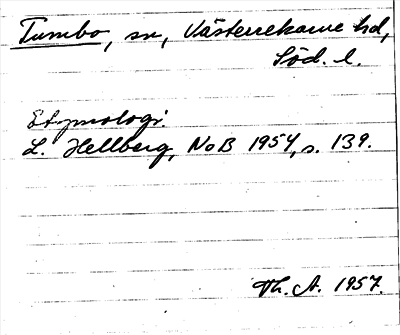 Tumbo, sn, Västerrekarne hd,
Söd. l.
Etymologi.
L. Hellberg, NoB 1954, s. 139.
Th. A. 1957.